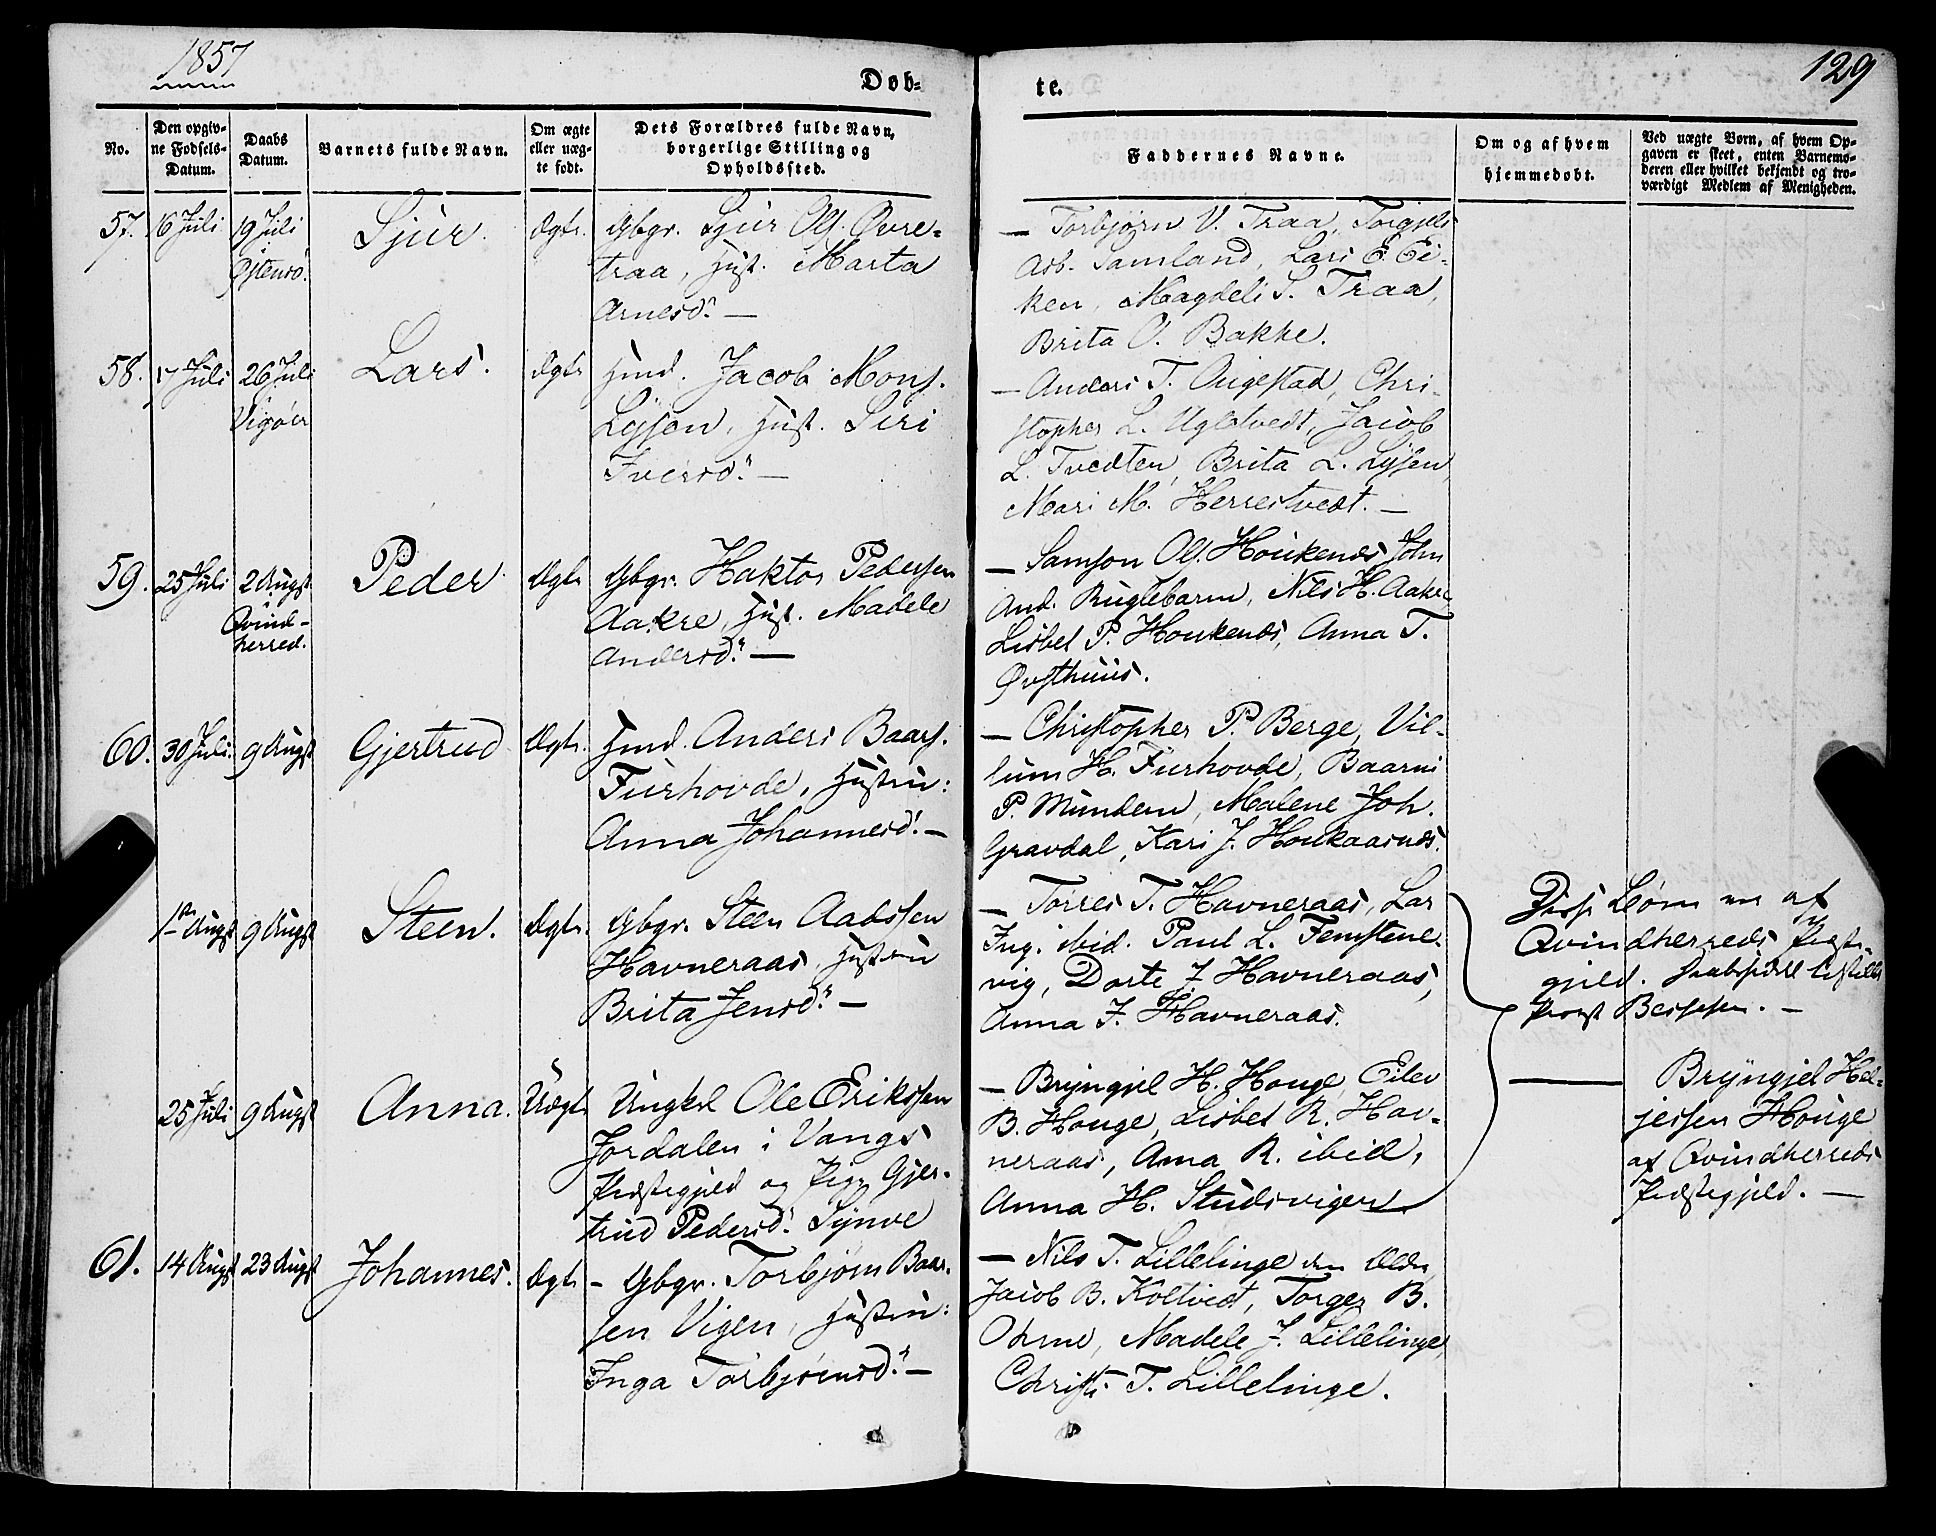 1857
129
Døb-
te.
No.
Den opgiv-
ne Fødsels-
Datum.
Daabs
Datum.
Barnets fulde Navn.
Om ægte
eller uæg-
te født.
Dets Forældres fulde Navn,
borgerlige Stilling og
Opholdssted.
Faddernes Navne.
Om og af hvem
hjemmedøbt.
Ved uægte Børn, af hvem Op-
gaven er skeet, enten Barnemo-
deren eller hvilket bekjendt og tro-
værdigt Medlem af Menigheden.
57. 16 Juli 19 Juli Sjur. Ægte. Gbgr. Sjur Ols. Øvre-
Østensø.
traa, Hust. Marta
Arnesd. —
— Torbjørn V. Traa, Torgjels
Asb. Samland, Lars E. Ei-
ken, Magdeli S. Traa,
Brita O. Bakke.
58. 17 Juli 26 Juli Lars. Ægte Hmd. Jacob Mons.
Vigøer
Lysen, Hust. Siri
Iversd. —
— Anders T. Augestad, Chri-
stopher L. Ugletvedt, Jacob
L. Tvedten, Brita L. Lysen,
Mari M. Herrestvedt. —
59. 25 Juli 2 Augst Peder. Ægte Gbgr. Haktor Pedersen
Qvind-
herred.
Aakre, Hust. Madele
Andersd. —
— Samson Ols. Houkenæs, John
And. Ruglebarm, Nils H. Aakre,
Lisbet P. Houkenæs, Anna T.
Øvsthuus.
60. 30 Juli 9 Augst Gjertrud Ægte. Hmd. Anders Baars.
Furhovde, Hustru:
Anna Johannesd. —
— Christopher P. Berge, Vil-
lum H. Furhovde, Baarni
P. Mundem, Malene Joh.
Gravdal, Kari J. Houkaasnæs.
1ste Augst 9 Augst Steen. Ægte. Gbgr. Steen Aadssen
Havneraas, Hustru
Brita Jensd. —
— Torres T. Havneraas, Lar
Ing. ibid. Paul L. Femstene-
vig, Dorte J. Havneraas,
Anna J. Havneraas.
Disse Børn ere af
Qvindherreds Præste-
gjeld.
Provst Bessesen. —
25 Juli 9 Augst Anna. Uægte Ungkl Ole Erikssen
Jordalen i Vangs
Præstegjeld og Pige Gjer-
trud Pedersd. Synve
— Bryngjel H. Houge, Eilev
B. Houge, Lisbet R. Hav-
neraas, Anna R. ibid,
Anna H. Studsvigen
— Bryngjel Hel-
jessen Houge
af Qvindherreds
Præstegjeld. —
61. 14 Augst 23 Augst Johannes. Ægte - Gbgr. Torbjørn Baar-
sen Vigen, Hustru:
Inga Torbjørnsd. —
— Nils T. Lillelinge den Ældre,
Jacob B. Koltvedt, Torger B.
Ohme, Madele J. Lillelinge,
Christi T. Lillelinge.